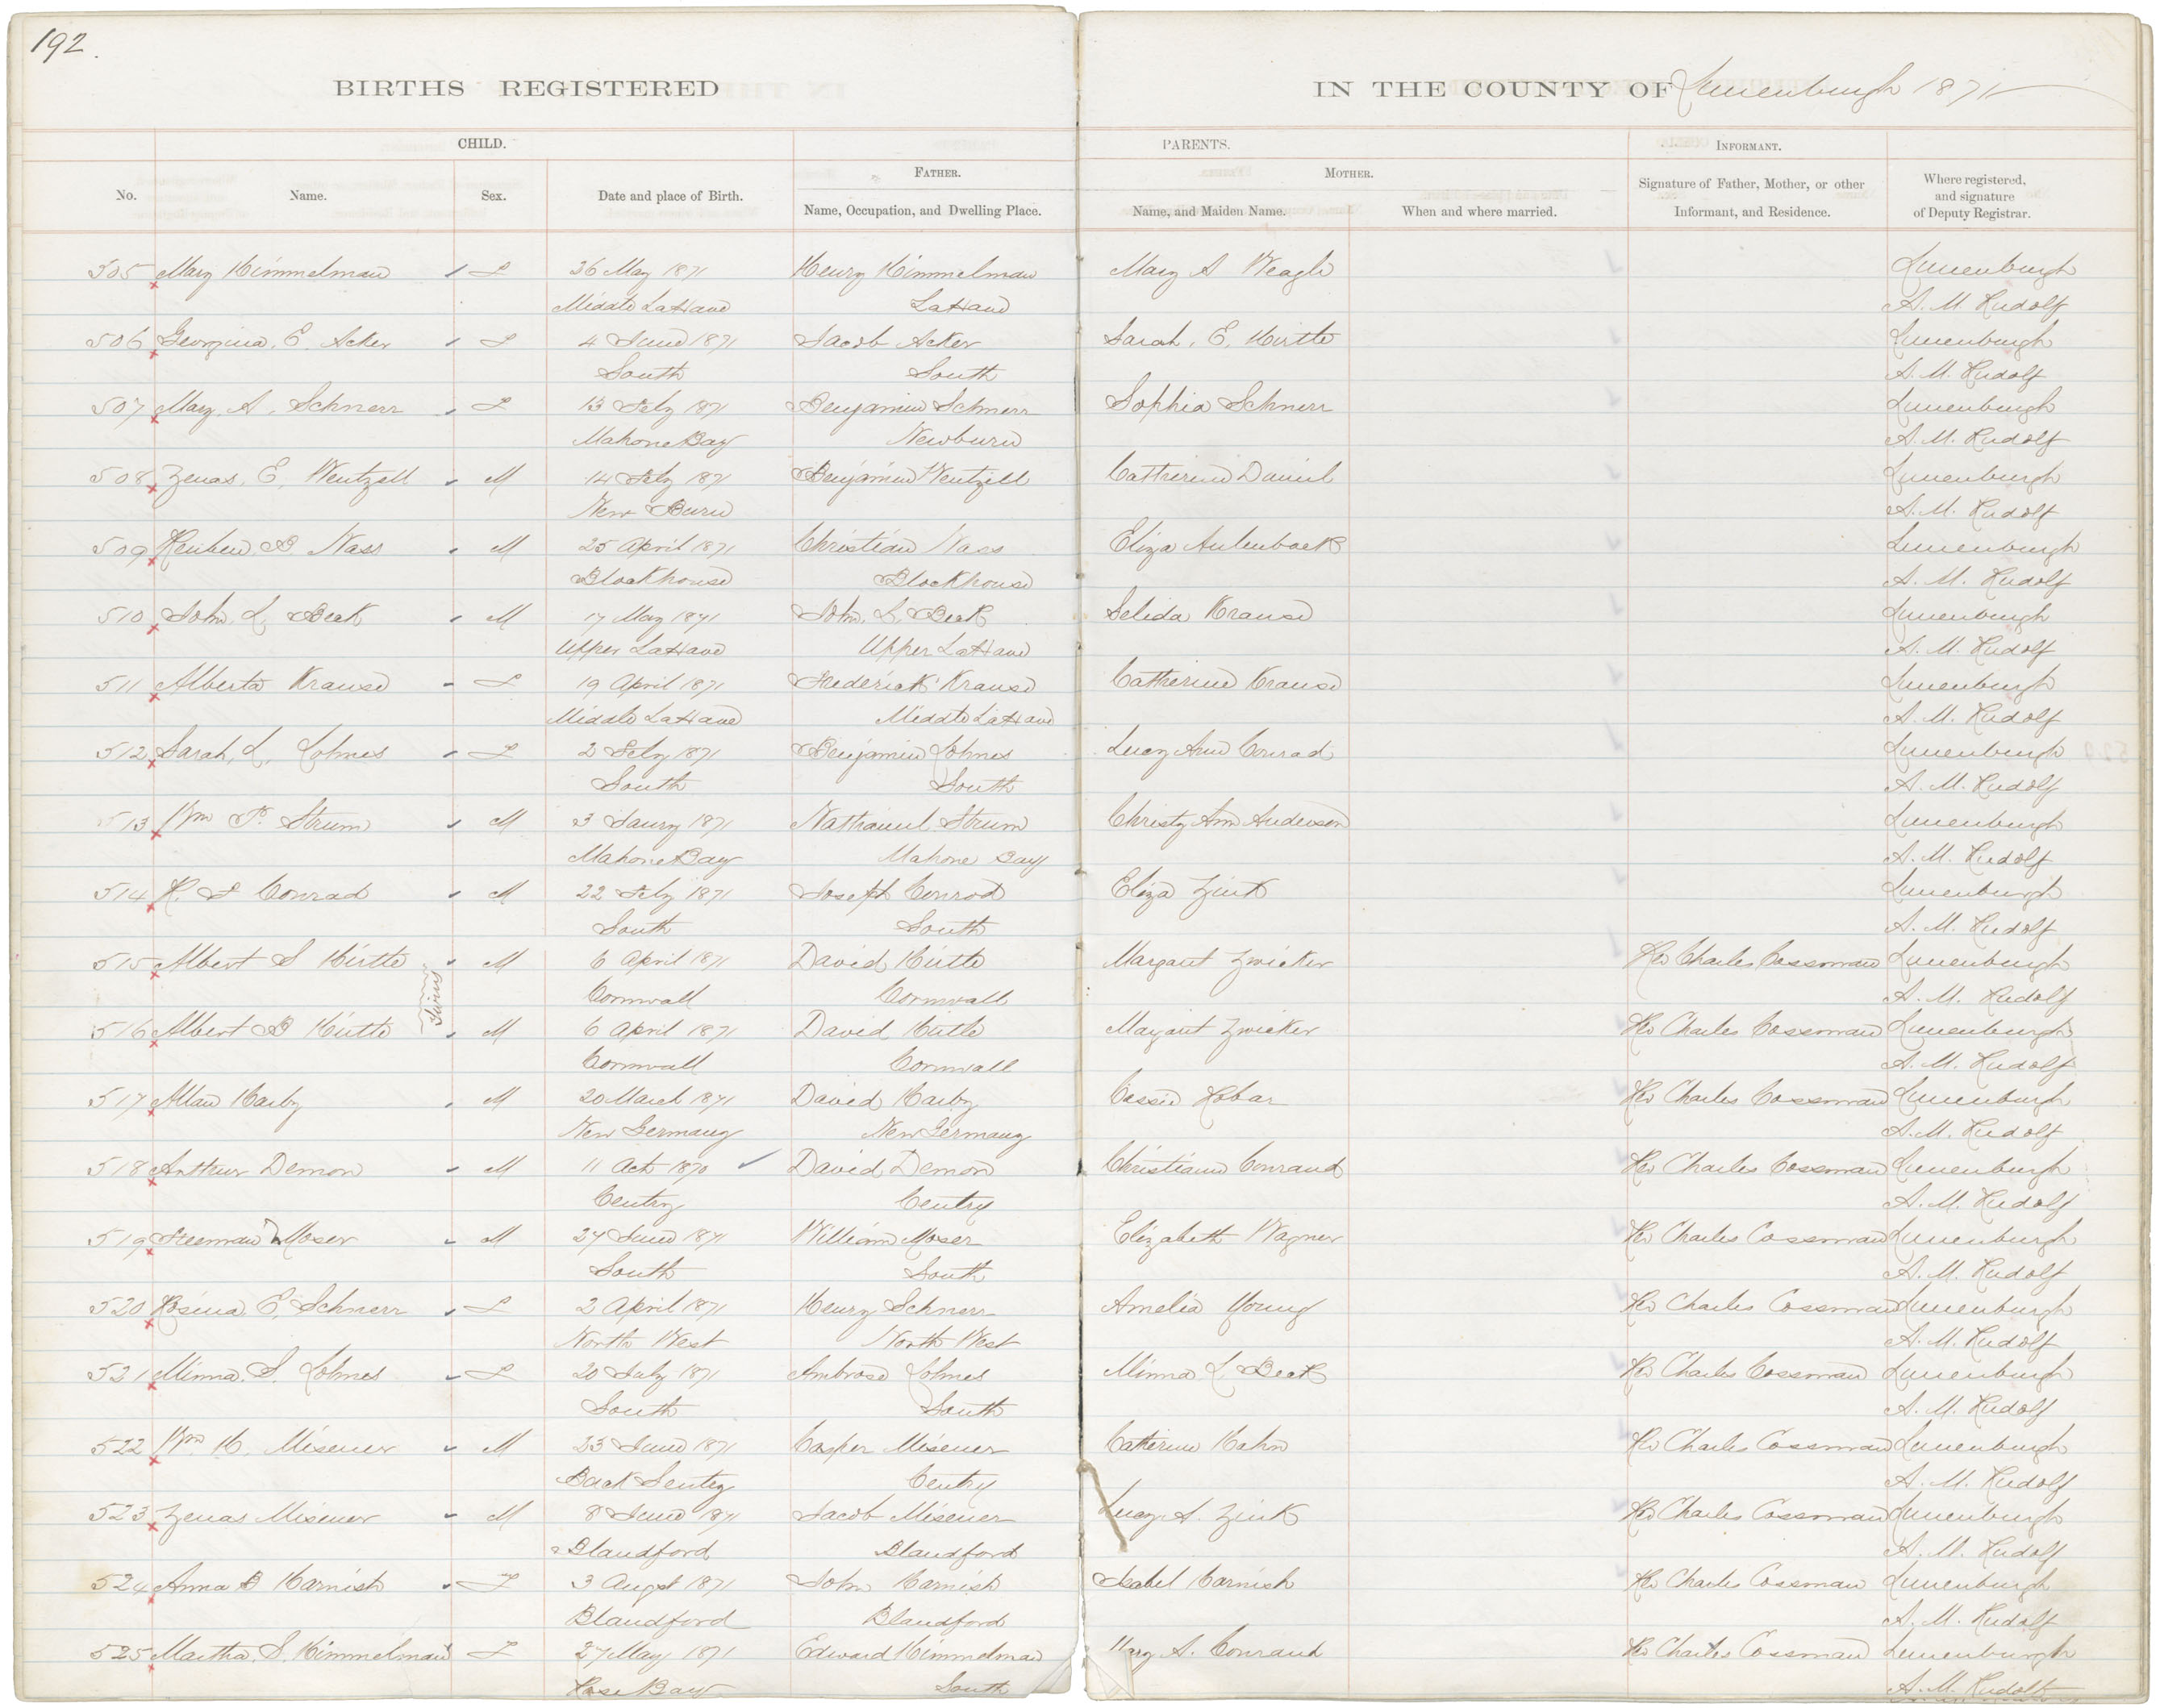 192.
BIRTHS REGISTERED IN THE COUNTY OF Lunenburgh 1871
CHILD. PARENTS. INFORMANT.
No. Name. Sex. Date and place of Birth. FATHER. Name, Occupation, and Dwelling Place. MOTHER. Name, and Maiden Name. When and where married. Signature of Father, Mother, or other Informant, and Residence. Where registered, and signature of Deputy Registrar.
505 Mary Himmelman F 26 May 1871 Henry Himmelman Mary A Weagle Lunenburgh
Middle LaHave LaHave A. M. Rudolf
506 Georgina. E. Acker F 4 June 1871 Jacob Acker Sarah. E. Hirtle Lunenburgh
South South A. M. Rudolf
507 Mary. A. Schnerr F 13 Feby 1871 Benjamin Schnerr Sophia Schnerr Lunenburgh
Mahone Bay Newburn A. M. Rudolf
508 Zenas. E. Wentzell M 14 Feby 1871 Benjamin Wentzell Catherine Daniel Lunenburgh
New Burn A. M. Rudolf
509 Reuben. B Nass M 25 April 1871 Christian Nass Eliza Aulenback Lunenburgh
Blockhouse Blockhouse A. M. Rudolf
510 John. L. Beck M 17 May 1871 John. L. Beck Selida Krause Lunenburgh
Upper LaHave Upper LaHave A. M. Rudolf
511 Alberta Krause F 19 April 1871 Frederick Krause Catherine Krause Lunenburgh
Middle LaHave Middle LaHave A. M. Rudolf
512 Sarah. L. Lohnes F 2 Feby 1871 Benjamin Lohnes Lucy Ann Conrad Lunenburgh
South South A. M. Rudolf
513 Wm P. Strum M 3 Jaury 1871 Nathaniel Strum Christy Ann Anderson Lunenburgh
Mahone Bay Mahone Bay A. M. Rudolf
514 H. F Conrad M 22 Feby 1871 Joseph Conrod Eliza Zink Lunenburgh
South South A. M. Rudolf
515 Albert S Hirtle Twins M 6 April 1871 David Hirtle Margaret Zwicker Rev Charles Cossman Lunenburgh
Cornwall Cornwall A. M. Rudolf
516 Albert B Hirtle M 6 April 1871 David Hirtle Margaret Zwicker Rev Charles Cossman Lunenburgh
Cornwall Cornwall A. M. Rudolf
517 Allan M 20 March 1871 David Cassie Rev Charles Cossman Lunenburgh
New Germany New Germany A. M. Rudolf
518 Arthur Demon M 11 Oct 1870 David Demon Christiann Conraud Rev Charles Cossman Lunenburgh
Centry Centry A. M. Rudolf
519 Freeman Moser M 27 June 1871 William Moser Elizabeth Wagner Rev Charles Cossman Lunenburgh
South South A. M. Rudolf
520 Rosina. E. Schnerr F 2 April 1871 Henry Schnerr Amelia Young Rev Charles Cossman Lunenburgh
North West North West A. M. Rudolf
521 Minna. S. Lohnes F 20 July 1871 Ambrose Lohnes Minna L. Beck Rev Charles Cossman Lunenburgh
South South A. M. Rudolf
522 Wm H. Misener M 23 June 1871 Casper Misener Catherine Hahn Rev Charles Cossman Lunenburgh
Back Sentry Centry A. M. Rudolf
523 Zenas Misener M 8 June 1871 Jacob Misener Lucy. A. Zink Rev Charles Cossman Lunenburgh
Blandford Blandford A. M. Rudolf
524 Anna B Harnish F 3 Augst 1871 John Harnish Isabel Harnish Rev Charles Cossman Lunenburgh
Blandford Blandford A. M. Rudolf
525 Martha. S. Himmelman F 27 May 1871 Edward Himmelman Mary A. Conraud Rev Charles Cossman Lunenburgh
Rose Bay South A. M. Rudolf